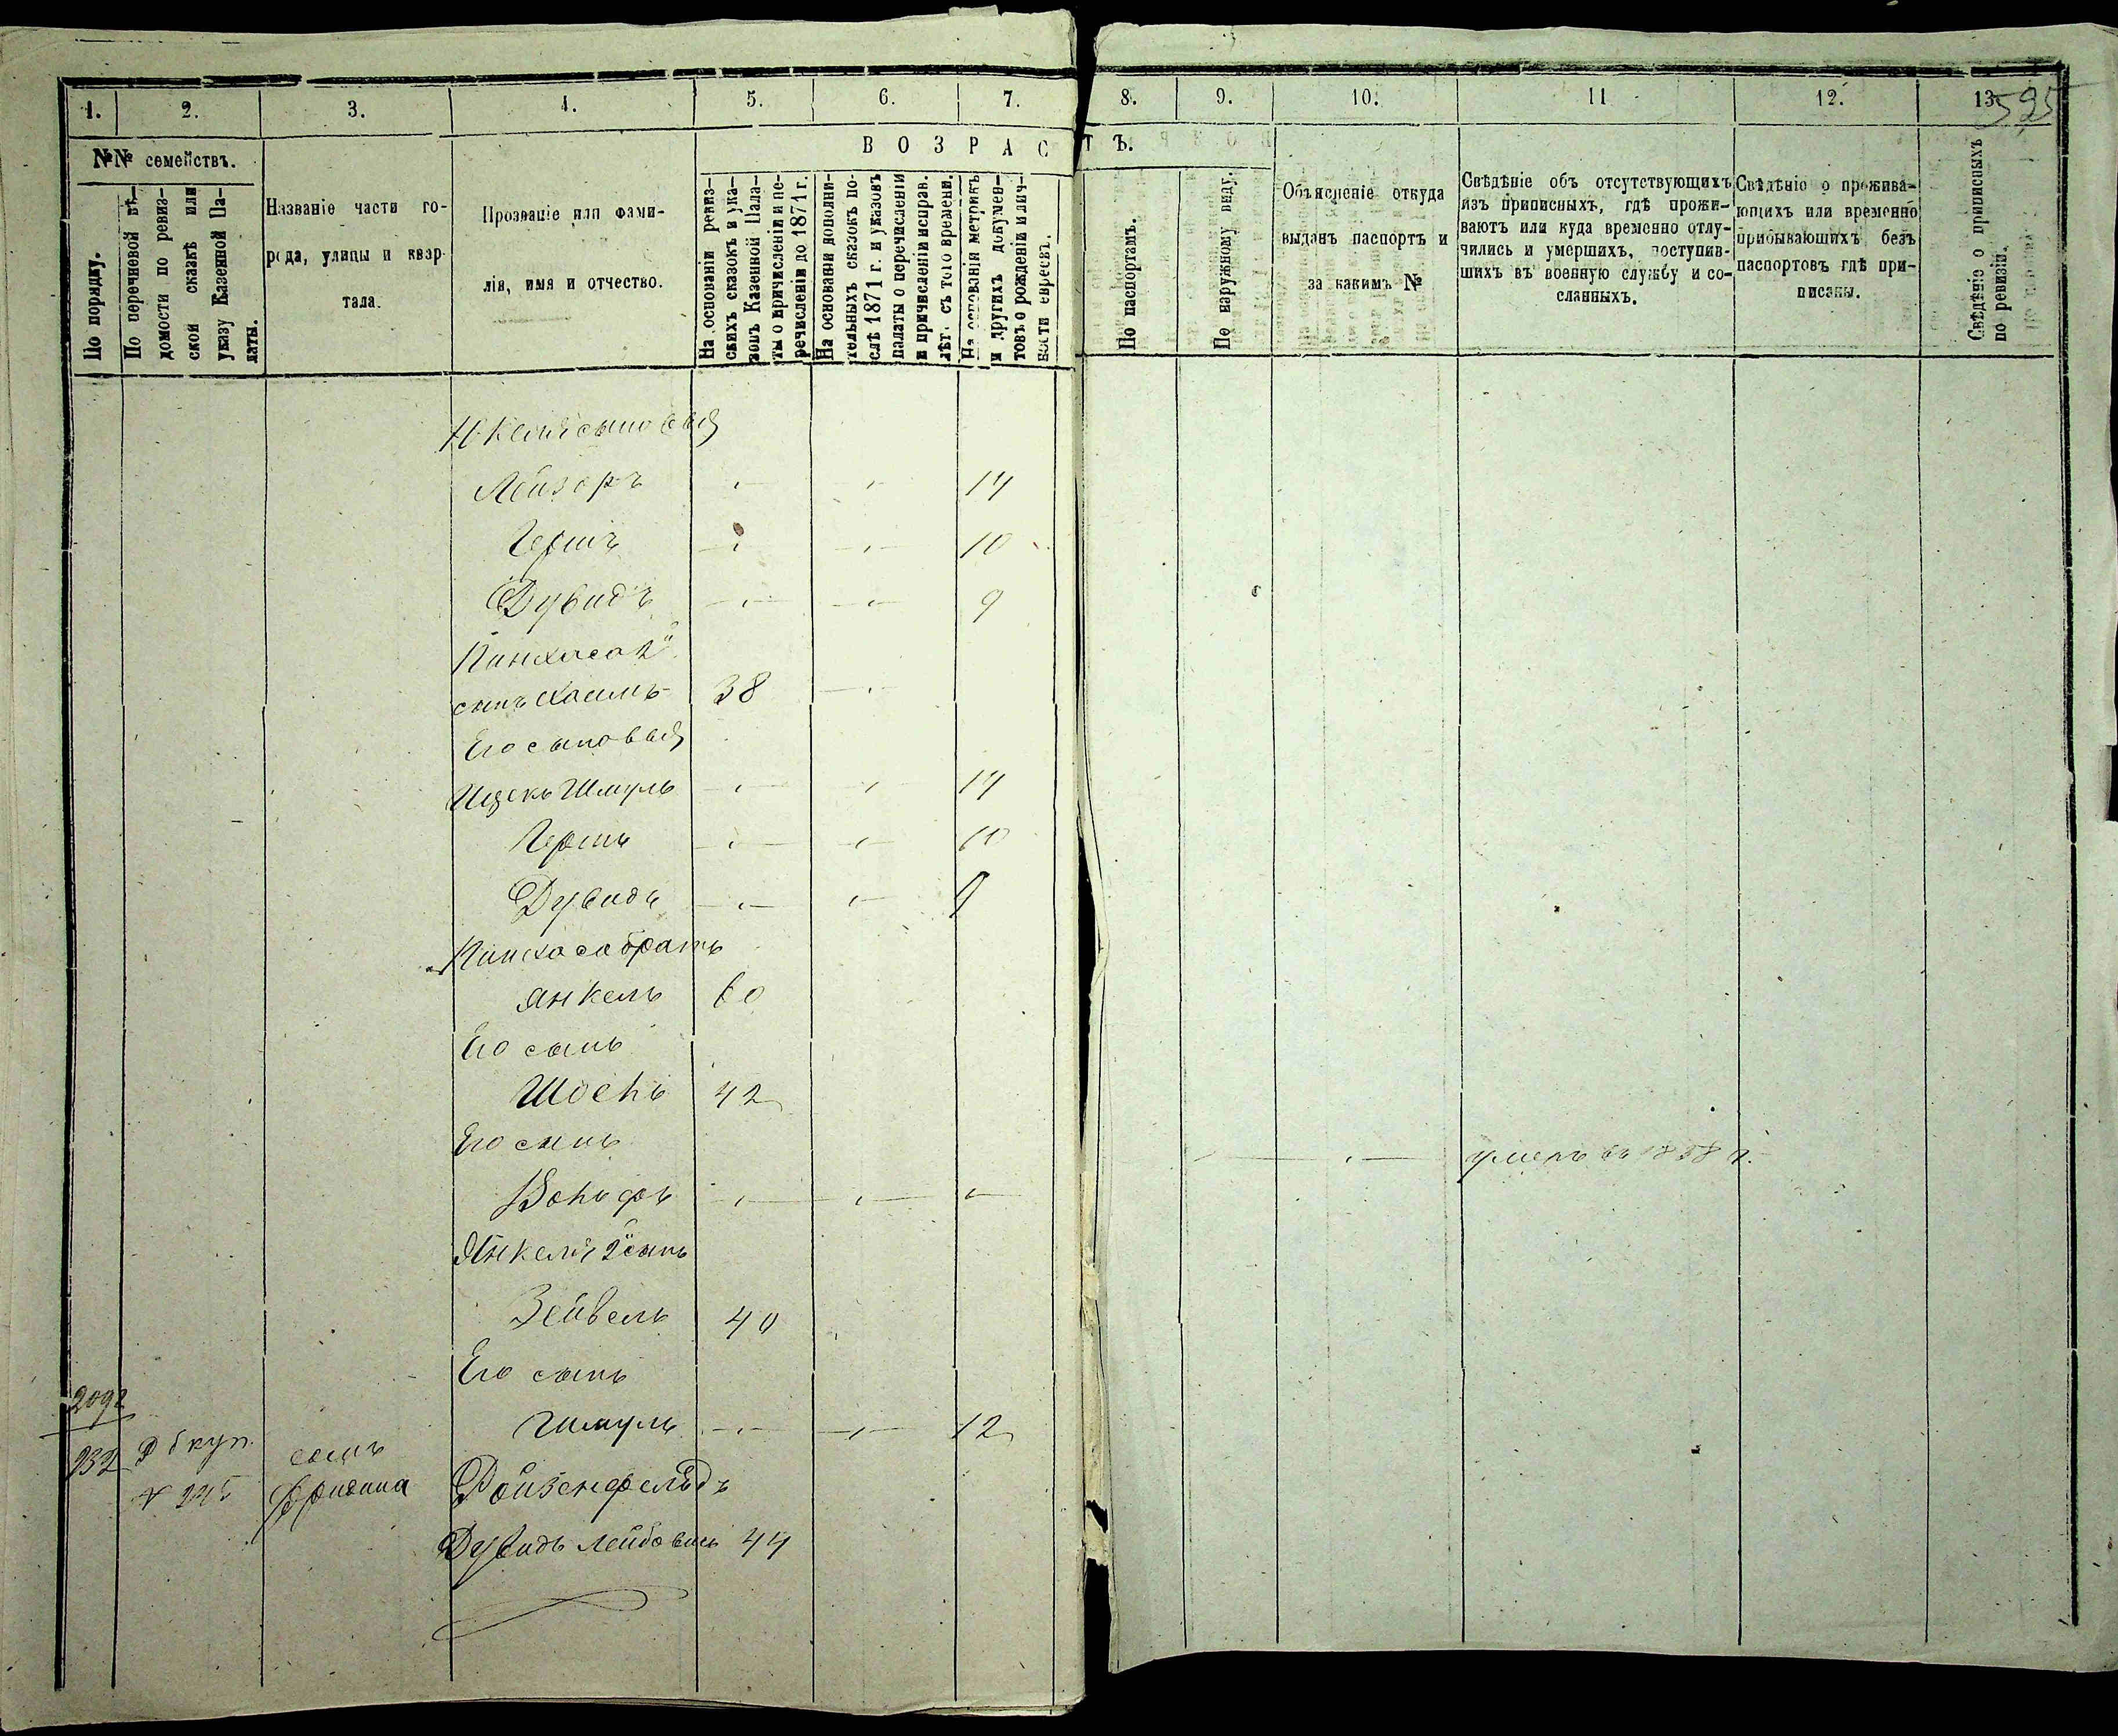 595
1. 2. 3. 4. 5. 6. 7. 8. 9. 10. 11 12. 13.
№№ семействъ.
По порядку.
По перечневой вѣ-
домости по ревиз-
ской сказкѣ или
указу Казенной Па-
латы.
Названіе части го-
рода, улицы и квар-
тала.
Прозваніе или фами-
лія, имя и отчество.
ВОЗРАСТЪ.
На основаніи ревиз-
скихъ сказокъ и ука-
зовъ Казенной Пала-
ты о причисленіи и пе-
речисленіи до 1871 г.
На основаніи дополни-
тельныхъ сказокъ по-
слѣ 1871 г. и указовъ
палаты о перечисленіи
и причисленіи исправ.
лѣтъ съ того времени.
На основаніи метрикъ
и другихъ докумен-
товъ о рожденіи и лич-
ности евреевъ.
По паспортамъ.
По наружному виду.
Объясненіе откуда
выданъ паспортъ и
за какимъ №
Свѣдѣніе объ отсутствующихъ
изъ приписныхъ, гдѣ прожи-
ваютъ или куда временно отлу-
чились и умершихъ, поступив-
шихъ въ военную службу и со-
сланныхъ.
Свѣдѣніе о прожива-
ющихъ или временно
прибывающихъ безъ
паспортовъ гдѣ при-
писаны.
Свѣдѣніе о приписныхъ
по ревизіи.
сыновья
Лейзоръ 14
Гершъ 10
Дувидъ 9
Пинхаса 2й
сынъ Хаимъ 38
Его сыновья
Ицекъ Шмуль 14
Гершъ 10
Дувидъ
Пинхаса братъ
Янкель 60
Его сынъ
42
Его сынъ
Вольфъ умеръ въ 1858 г.
Янкеля 2й сынъ
Зейвель 40
Его сынъ
2092
Шмуль 12
232 куп. тожъ
Ройзенфельдъ
Дувидъ Лейбовъ 44